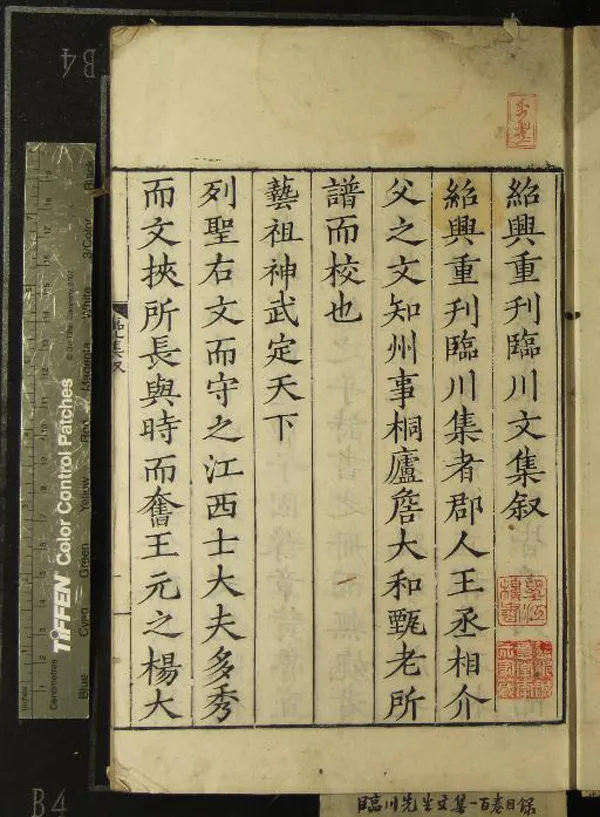 紹興重刊臨川文集叙
紹興重刊臨川集者郡人王丞相介
父之文知州事桐廬詹大和甄老所
譜而校也
藝祖神武定天下
列聖右文而守之江西士大夫多秀
而文挾所長與時而奮王元之楊大
臨川先生文集一百卷目録
B4
B4
TIFFEN Color Control Patches
Blue
Cyan
Green
Yellow
Red
Magenta
White
3/Color
Black
Centimetres
Inches